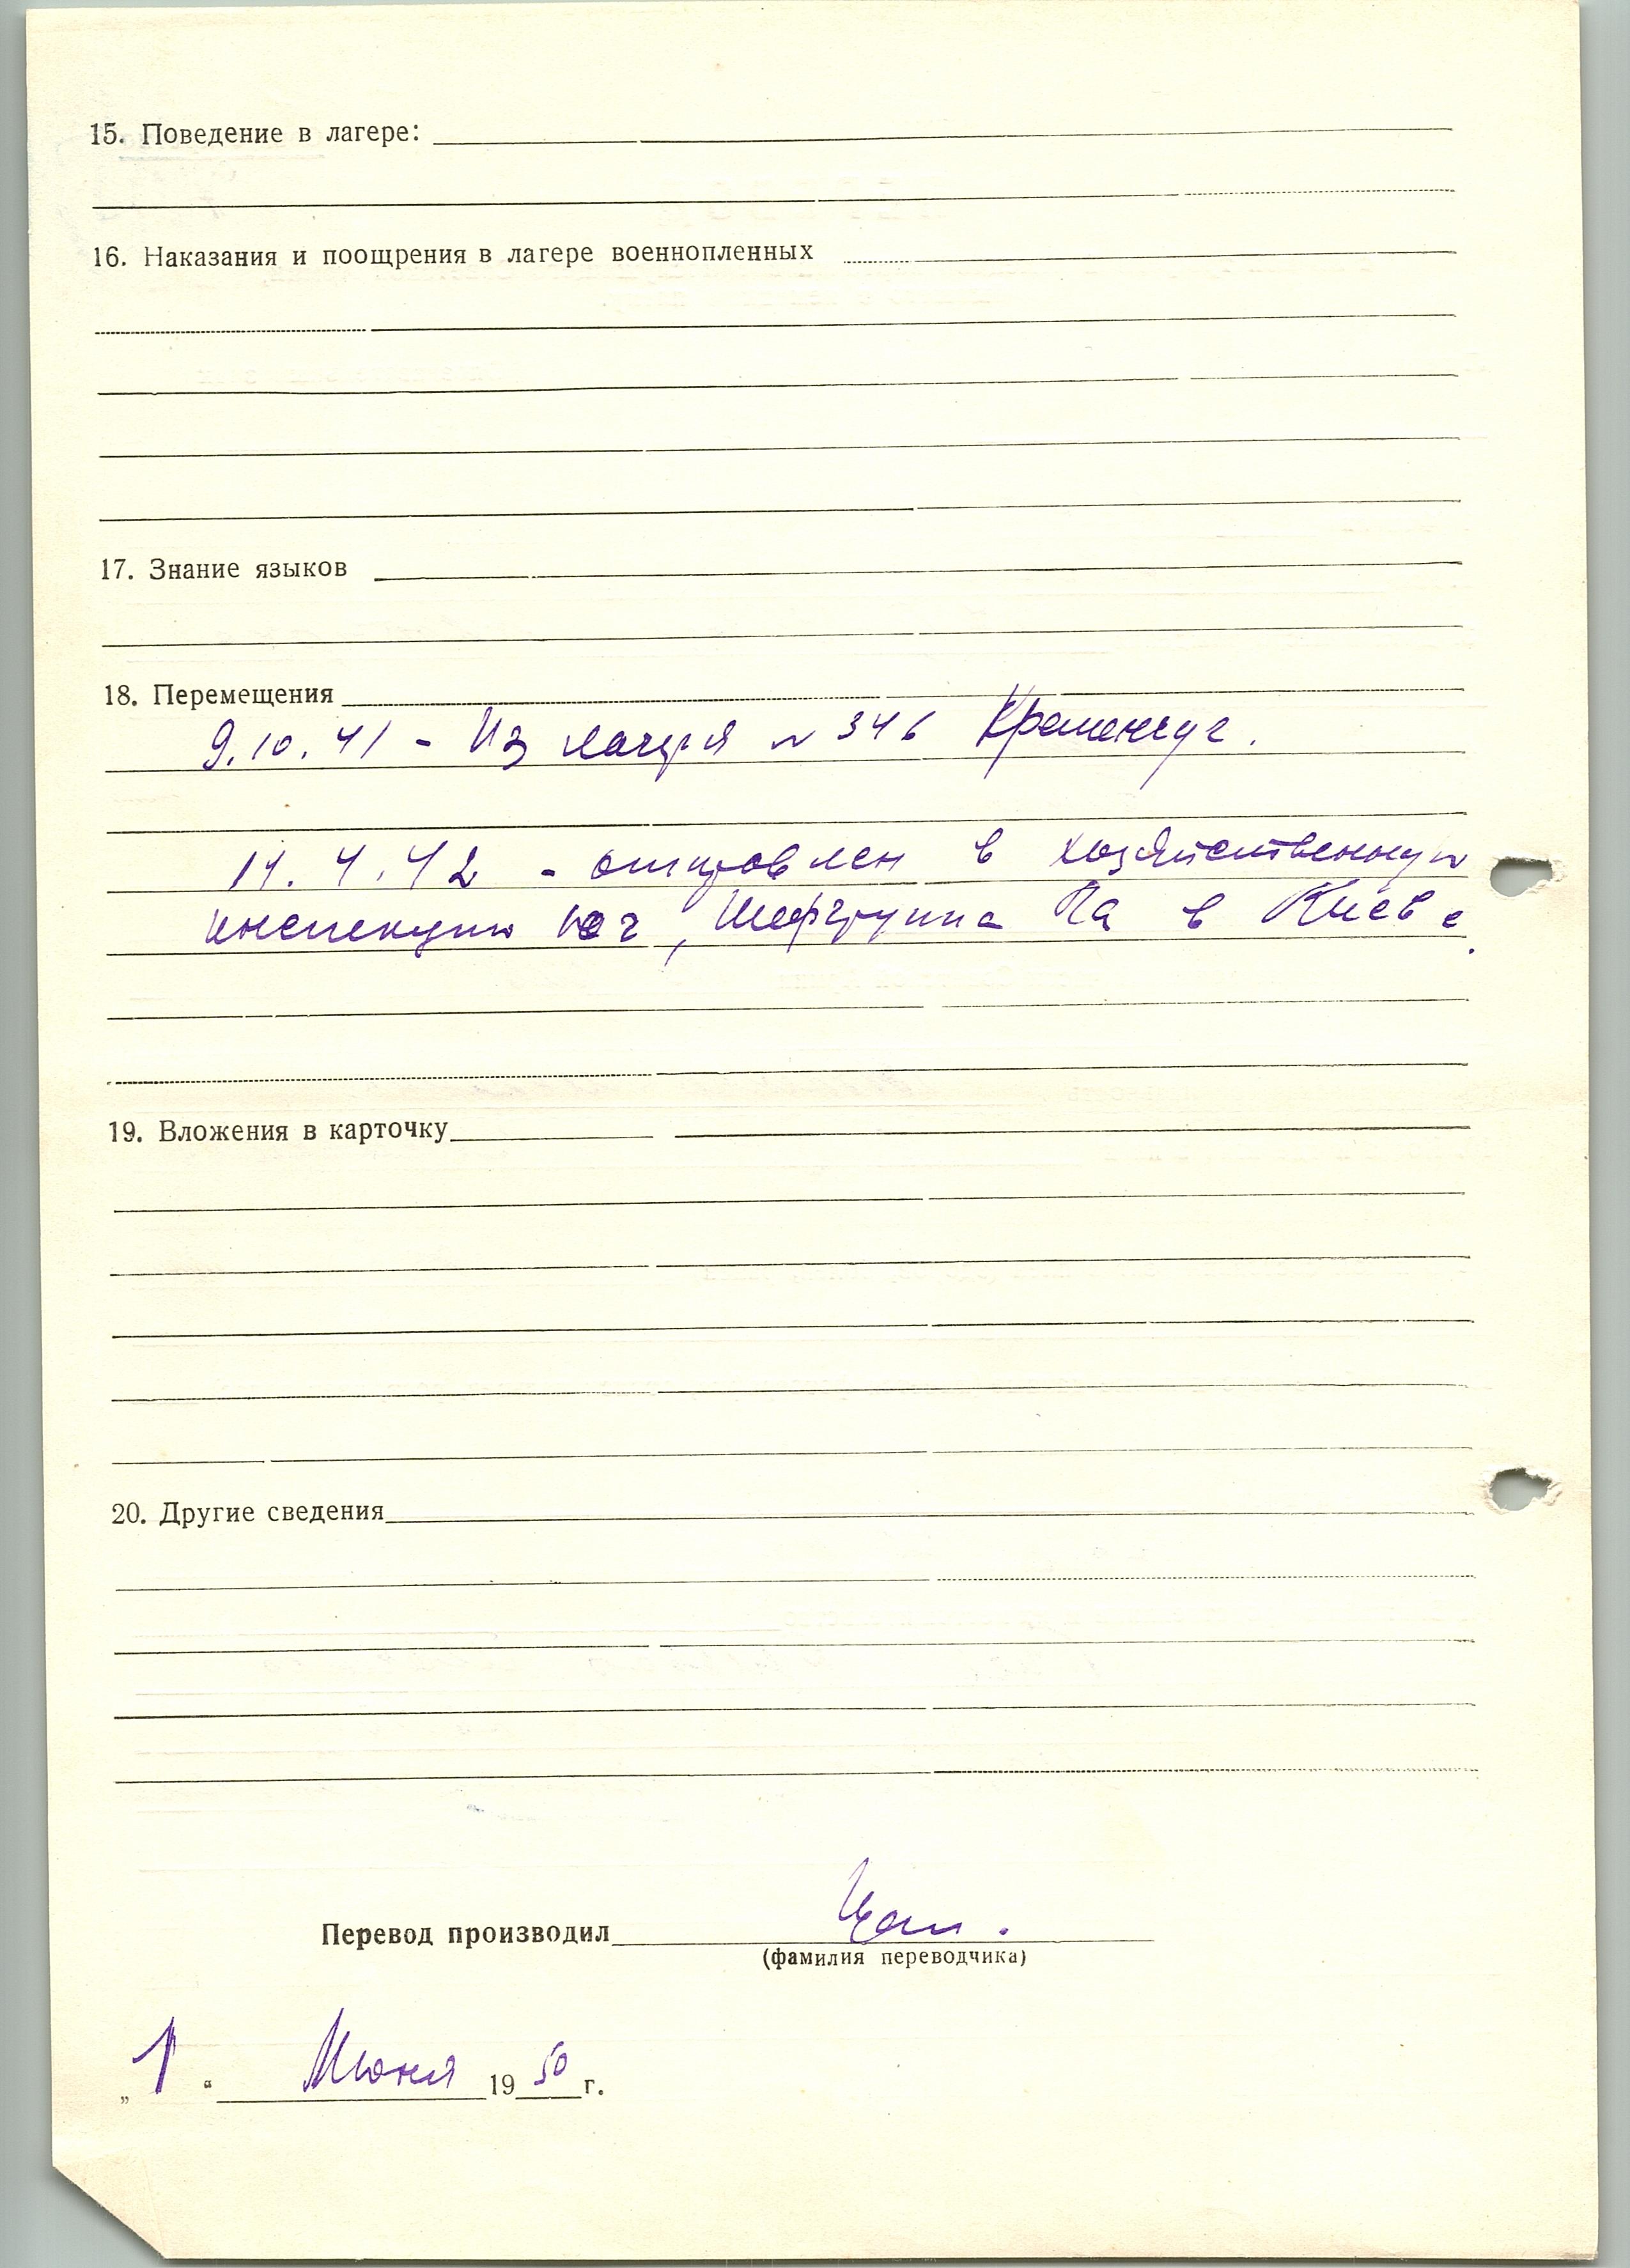 15. Поведение в лагере:
16. Наказания и поощрения в лагере военнопленных
17. Знание языков
18. Перемещения
9.10.41 - Из лагеря № 346 Кременчуг.
14.4.42 - отправлен в хозяйственную
инспекцию Юг, Шефгруппа Ла в Киеве.
19. Вложения в карточку
20. Другие сведения
Перевод производил
(фамилия переводчика)
„1“ Июня 1950 г.